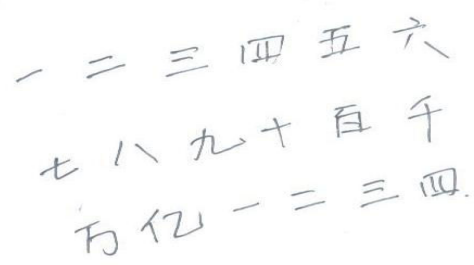 一二三四五六
七八九十百千
万亿一二三四